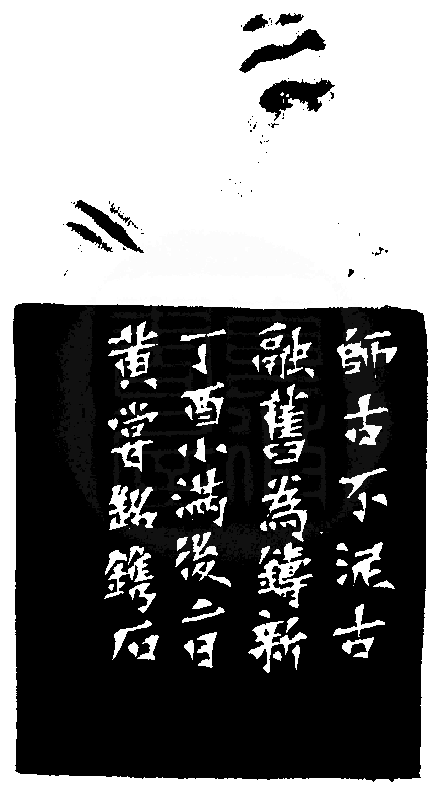 師古不泥古
融舊為鑄新
丁酉小滿後二日
黃嘗銘鐫石